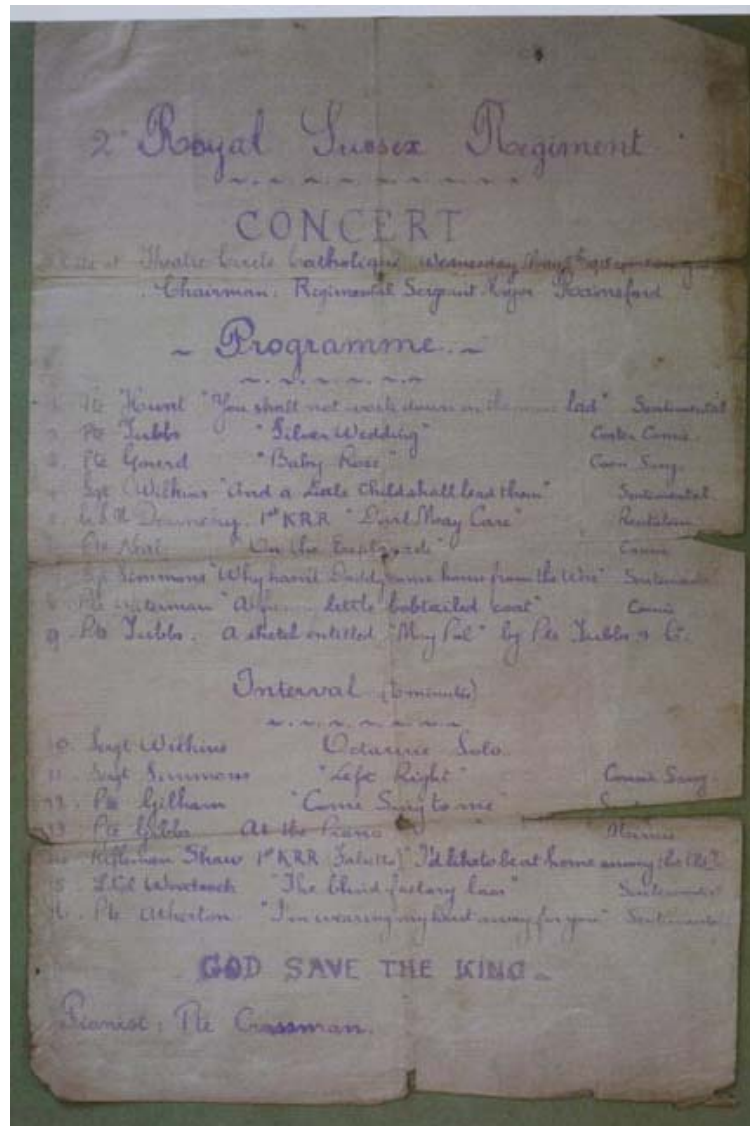 2nd Royal Sussex Regiment
CONCERT
at Theatre Circle Catholique Wednesday May
Chairman. Regimental Sergeant Major Rainsford
~ Programme ~
1. Pte Hunt "You shall not work down in the mine lad" Sentimental
2. Pte Tubbs "Silver Wedding" Coster Comic.
3. Pte Gourd "Baby Rose" Coon Song.
4. Sgt Wilkins "And a Little Child shall lead them" Sentimental.
5. 1st KRR "Devil May Care"
Pte Neal "On the" Comic
7. Sgt Simmons "Why hasn't Daddy come home from the War" Sentimental
8. Pte Waterman little bobtailed coat" Comic
9. Pte Tubbs. A sketch entitled "My Pal" by Pte Tubbs & Co.
Interval (10 minutes)
10. Sergt Wilkins Ocarina Solo.
11. Sergt Simmons "Left Right" Comic Song.
12. Pte Gilham "Come Sing to me"
13. Pte Gibbs At the Piano
14. Rifleman Shaw 1st KRR (Falsetto) "I'd like to be at home among the
15. "The blind factory lass" Sentimental
16. Pte Atherton "I'm wearing my heart away for you" Sentimental
GOD SAVE THE KING
Pianist: Pte Crossman.